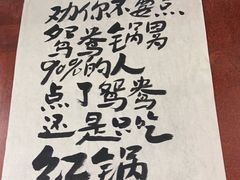 劝你不要点
鸳鸯锅男
90%的人
点了鸳鸯
还是只吃
红锅